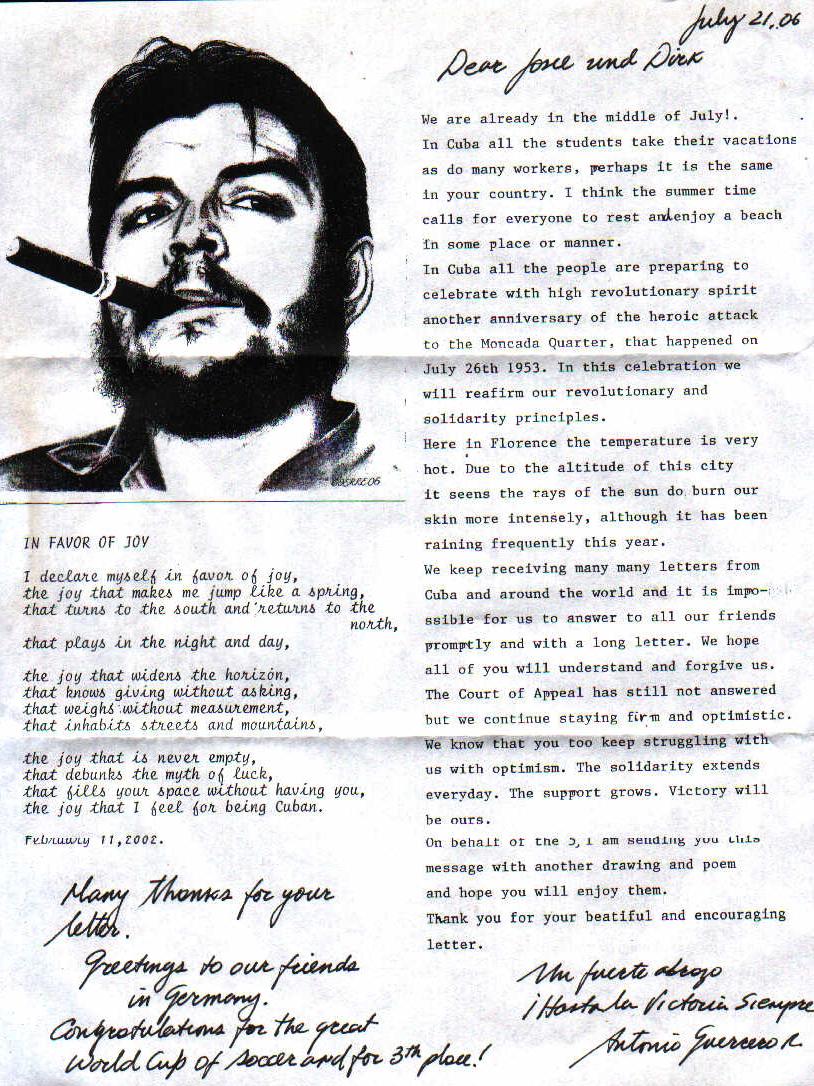 July 21,06
Dear Josie und Dirk
We are already in the middle of July!.
In Cuba all the students take their vacations
as do many workers, perhaps it is the same
in your country. I think the summer time
calls for everyone to rest and enjoy a beach
in some place or manner.
In Cuba all the people are preparing to
celebrate with high revolutionary spirit
another anniversary of the heroic attack
to the Moncada Quarter, that happened on
July 26th 1953. In this celebration we
will reafirm our revolutionary and
solidarity principles.
Here in Florence the temperature is very
hot. Due to the altitude of this city
it seems the rays of the sun do burn our
skin more intensely, although it has been
raining frequently this year.
We keep receiving many many letters from
Cuba and around the world and it is impo-
ssible for us to answer to all our friends
promptly and with a long letter. We hope
all of you will understand and forgive us.
The Court of Appeal has still not answered
but we continue staying firm and optimistic.
We know that you too keep struggling with
us with optimism. The solidarity extends
everyday. The support grows. Victory will
be ours.
On behalf of the 5, I am sending you this
message with another drawing and poem
and hope you will enjoy them.
Thank you for your beatiful and encouraging
letter.
Un fuerte abrazo
¡Hasta la Victoria Siempre
Antonio Guerrero R.
IN FAVOR OF JOY
I declare myself in favor of joy,
the joy that makes me jump like a spring,
that turns to the south and returns to the
north,
that plays in the night and day,
the joy that widens the horizón,
that knows giving without asking,
that weighs without measurement,
that inhabits streets and mountains,
the joy that is never empty,
that debunks the myth of luck,
that fills your space without having you,
the joy that I feel for being Cuban.
February 11,2002.
Many thanks for your
letter.
Greetings to our friends
in Germany.
Congratulations for the great
World Cup of soccer and for 3th place!